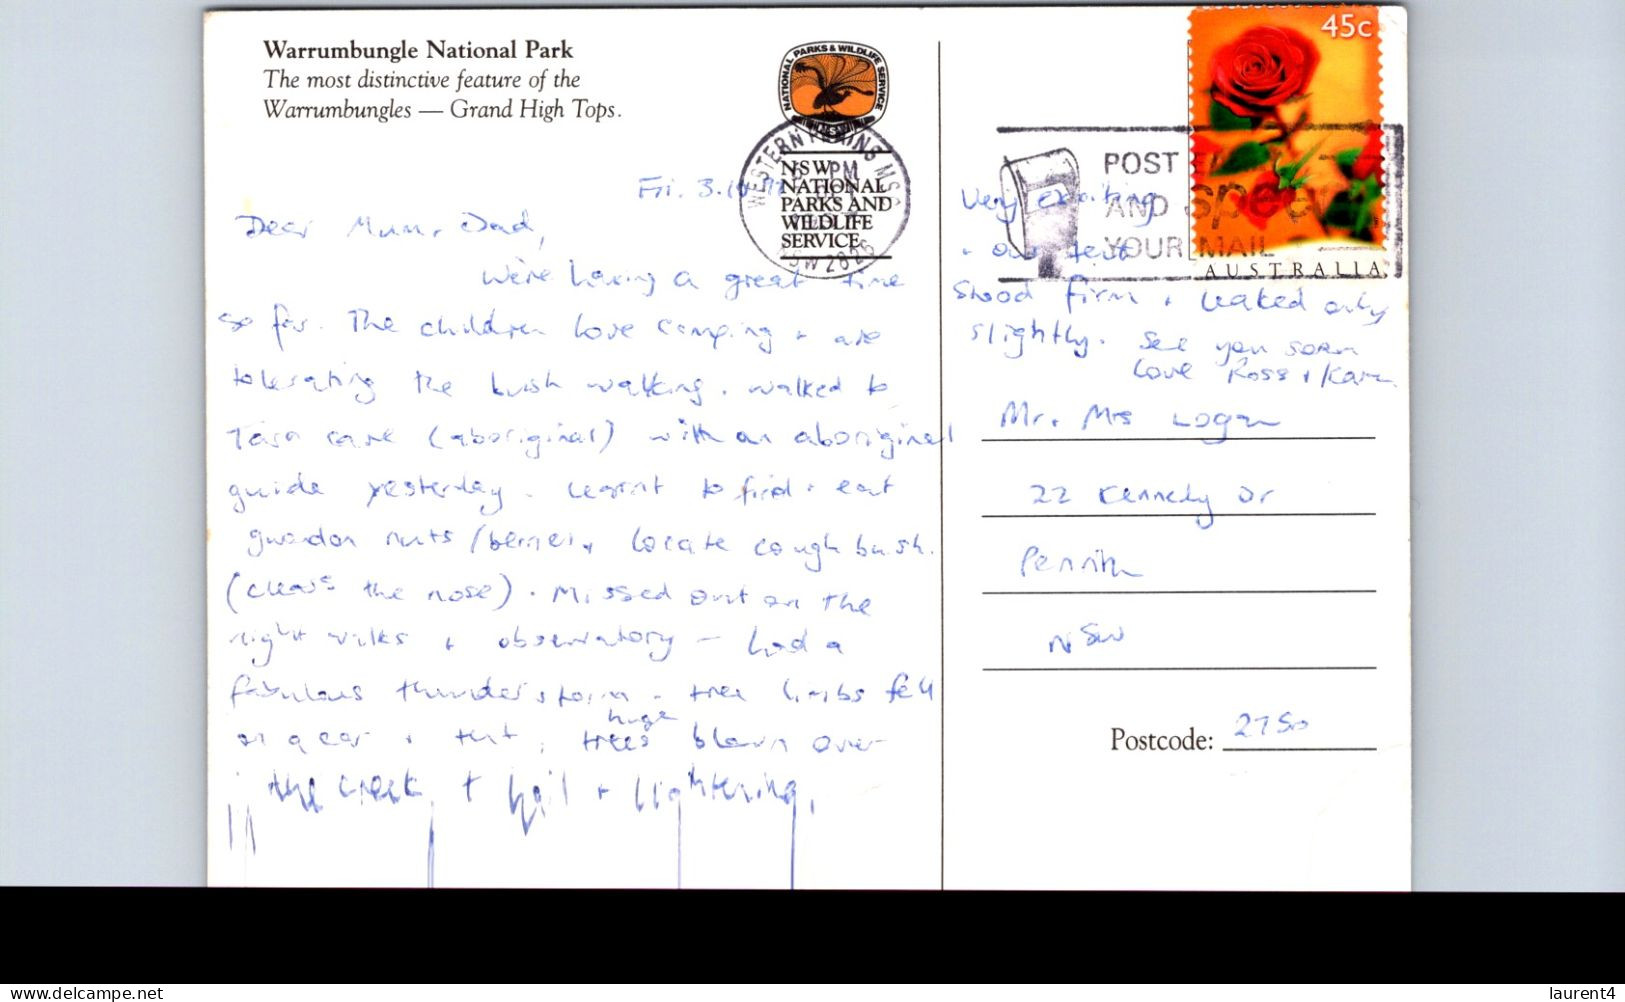 Warrumbungle National Park
The most distinctive feature of the
Warrumbungles — Grand High Tops.
NATIONAL PARKS & WILDLIFE SERVICE
NSW
NATIONAL
PARKS AND
WILDLIFE
SERVICE
WESTERN PLAINS MSC
PM
NSW 2826
45c
AUSTRALIA
POST EARLY
AND speed
YOUR MAIL
Fri. 3.10.97
Dear Mum & Dad,
We're having a great time
so far. The children love camping + are
tolerating the bush walking. walked to
Tara cave (aboriginal) with an aboriginal
guide yesterday. Learnt to find + eat
nuts/berries + locate cough bush.
(clears the nose). Missed out on the
night walks + observatory - had a
fabulous thunderstorm - tree limbs fell
on a car + tent, huge trees blown over
the creek, + hail + lightening,
Very exciting
- our tent
stood firm + leaked only
slightly. See you soon
Love Ross + Karen
Mr. Mrs Logan
22 Kennedy Dr
Penrith
NSW
Postcode: 2750
Delcampe.net
laurent4